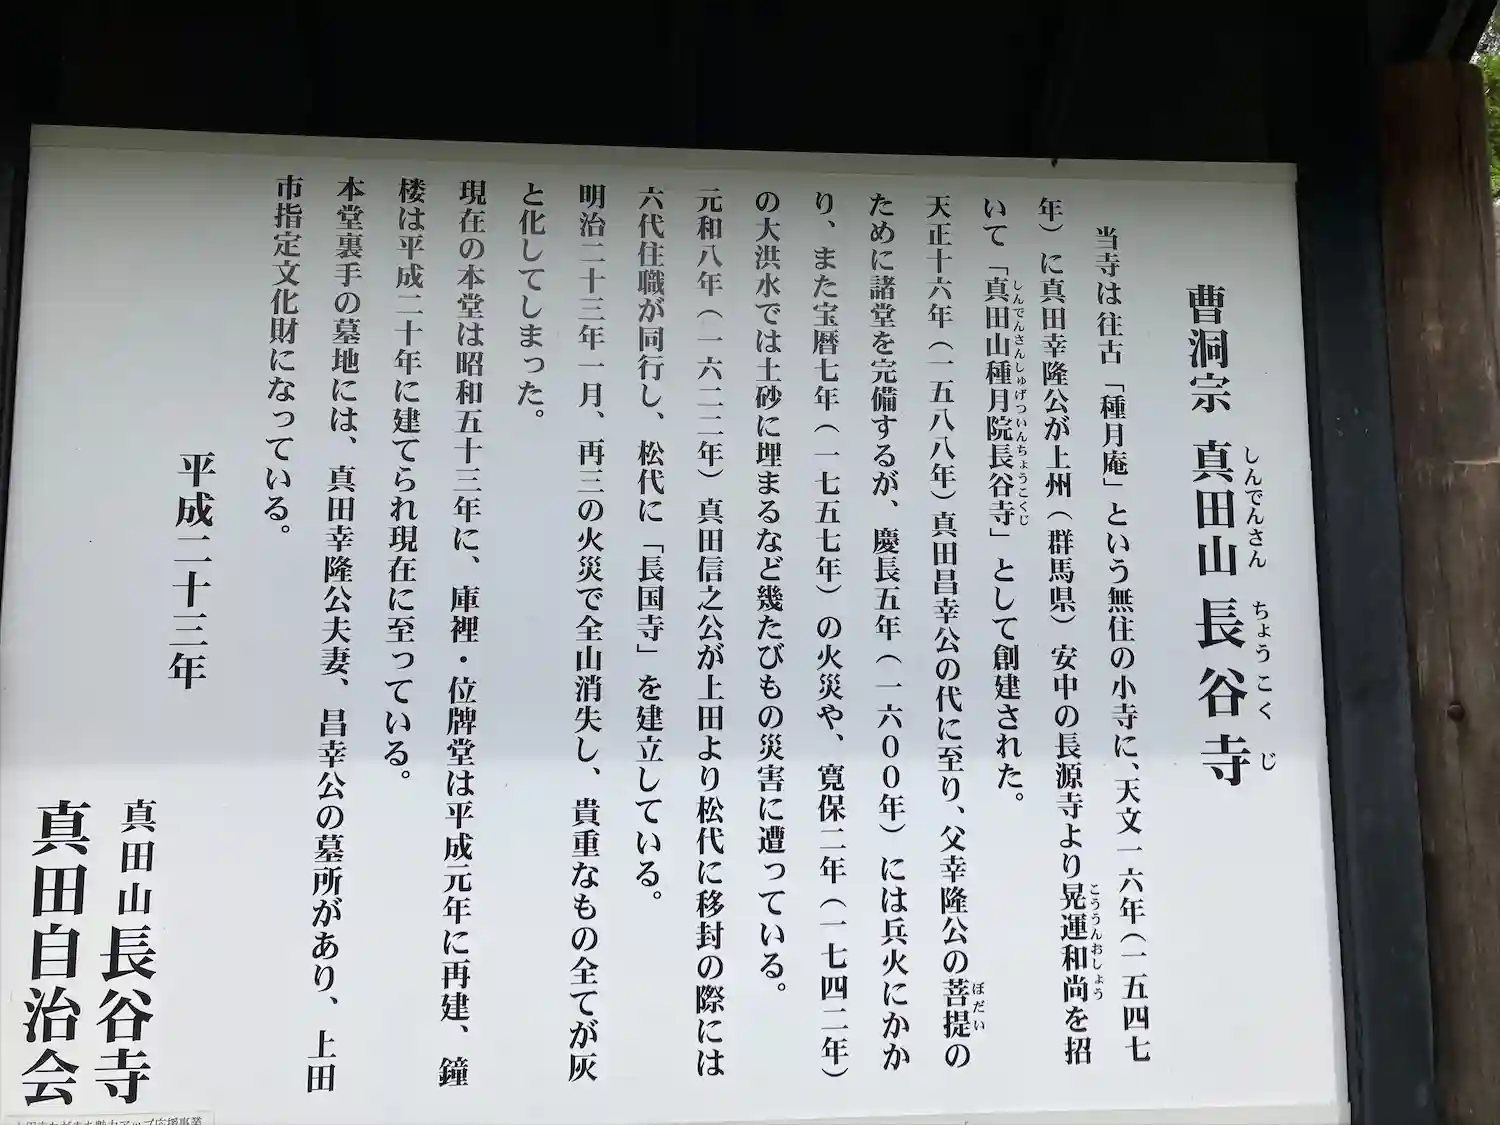 曹洞宗 真田山 長谷寺
しんでんさん ちょうこくじ
当寺は往古「種月庵」という無住の小寺に、天文一六年（一五四七
年）に真田幸隆公が上州（群馬県）安中の長源寺より晃運和尚を招
こううんおしょう
いて「真田山種月院長谷寺」として創建された。
しんでんさんしゅげついんちょうこくじ
天正十六年（一五八八年）真田昌幸公の代に至り、父幸隆公の菩提の
ぼだい
ために諸堂を完備するが、慶長五年（一六００年）には兵火にかか
り、また宝暦七年（一七五七年）の火災や、寛保二年（一七四二年）
の大洪水では土砂に埋まるなど幾たびもの災害に遭っている。
元和八年（一六二二年）真田信之公が上田より松代に移封の際には
六代住職が同行し、松代に「長国寺」を建立している。
明治二十三年一月、再三の火災で全山消失し、貴重なもの全てが灰
と化してしまった。
現在の本堂は昭和五十三年に、庫裡・位牌堂は平成元年に再建、鐘
楼は平成二十年に建てられ現在に至っている。
本堂裏手の墓地には、真田幸隆公夫妻、昌幸公の墓所があり、上田
市指定文化財になっている。
平成二十三年
真田山長谷寺
真田自治会